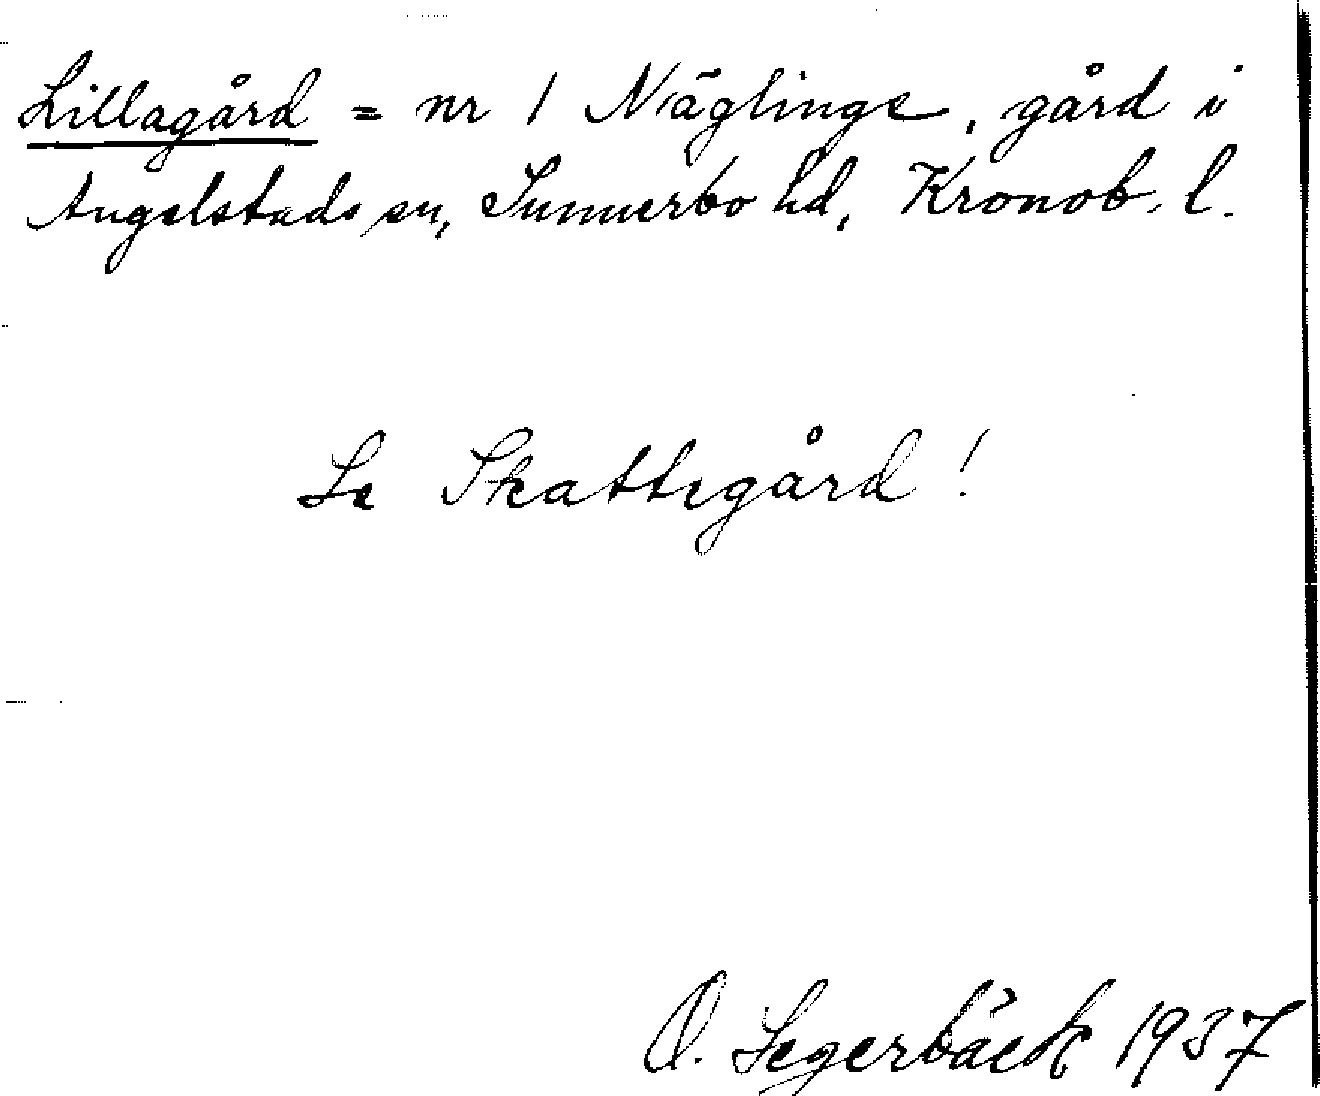 Lillagård = nr 1 Näglinge, gård i
Angelstads sn, Sunnerbo hd, Kronob. l.
Se Skattegård!
O. Segerbäck 1937